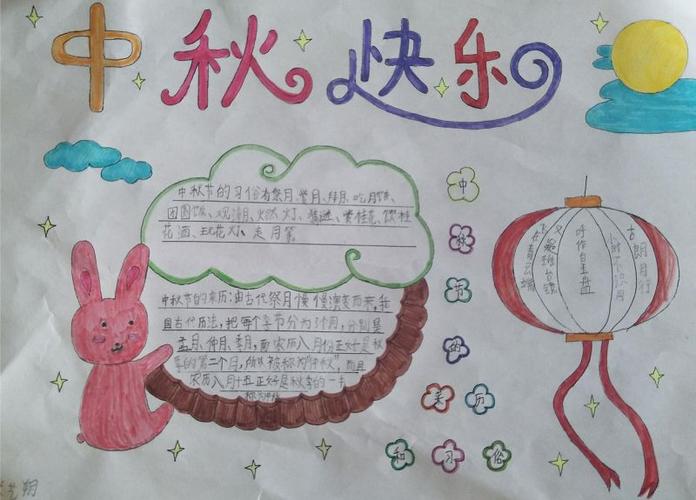 中秋快乐
中秋节的习俗有祭月、赏月、拜月、吃月饼、
团圆饭、观潮、燃灯、猜谜、赏桂花、饮桂
花酒、玩花灯、走月等
中秋节的来历:由古代祭月慢慢演变而来,我
国古代历法,把每个季节分为3个月,分别是
孟月、仲月、季月,而农历八月份正好是秋
季的第二个月,所以被称为"仲秋",而且
农历八月十五正好是秋季的一半
中
秋
节
的
来历
和习俗
古朗月行
小时不识月
呼作白玉盘
又疑瑶台镜
在青云端
翔